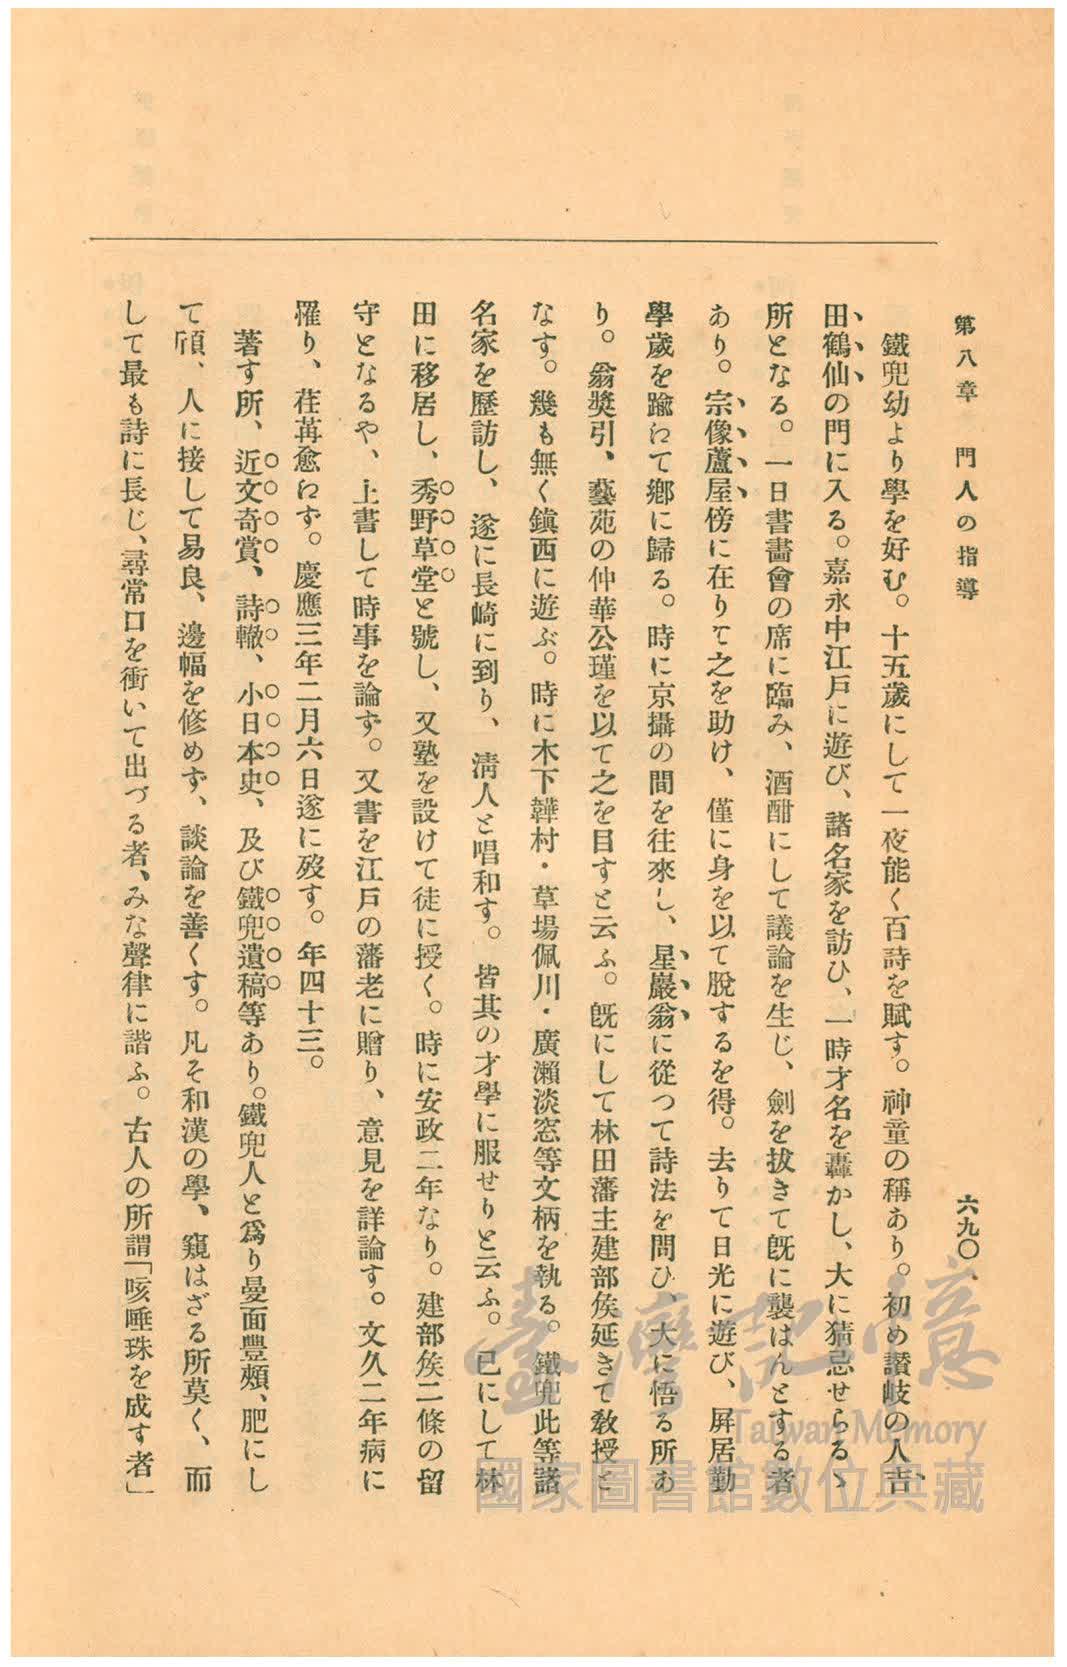 第八章　門人の指導
六九〇
鐵兜幼より學を好む。十五歲にして一夜能く百詩を賦す。神童の稱あり。初め讃岐の人、吉
田鶴仙の門に入る。嘉永中江戶に遊び、諸名家を訪ひ、一時才名を轟かし、大に猜忌せらるゝ
所となる。一日書畵會の席に臨み、酒酣にして議論を生じ、劍を拔きて旣に襲はんとする者
あり。宗像蘆屋傍に在りて之を助け、僅に身を以て脫するを得。去りて日光に遊び、屏居勤
學歲を踰ゑて鄕に歸る。時に京攝の間を往來し、星巖翁に從つて詩法を問ひ、大に悟る所あ
り。翁奬引、藝苑の仲華公瑾を以て之を目すと云ふ。旣にして林田藩主建部矦延きて敎授と
なす。幾も無く鎭西に遊ぶ。時に木下韡村・草場佩川・廣瀨淡窓等文柄を執る。鐵兜此等諸
名家を歷訪し、遂に長崎に到り、淸人と唱和す。皆其の才學に服せりと云ふ。已にして林
田に移居し、秀野草堂と號し、又塾を設けて徒に授く。時に安政二年なり。建部矦二條の留
守となるや、上書して時事を論ず。又書を江戶の藩老に贈り、意見を詳論す。文久二年病に
罹り、荏苒愈ゑず。慶應三年二月六日遂に歿す。年四十三。
著す所、近文奇賞、詩轍、小日本史、及び鐵兜遺稿等あり。鐵兜人と爲り曼面豐頰、肥にし
て頎、人に接して易良、邊幅を修めず、談論を善くす。凡そ和漢の學、窺はざる所莫く、而
して最も詩に長じ、尋常口を衝いて出づる者、みな聲律に諧ふ。古人の所謂「咳唾珠を成す者」
臺灣記憶
Taiwan Memory
國家圖書館數位典藏